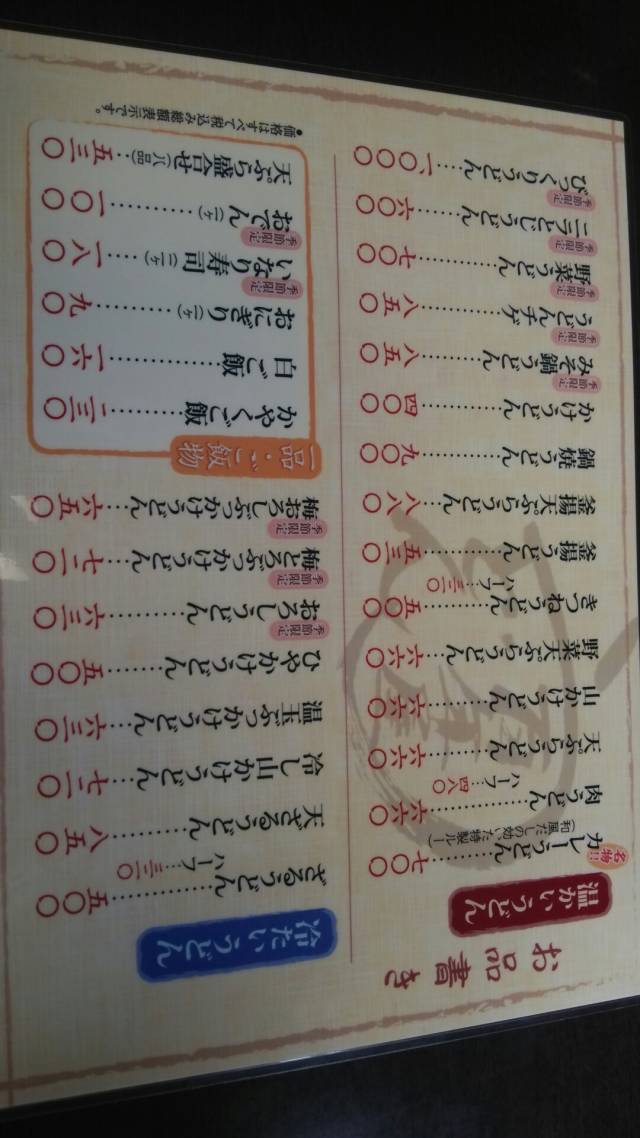 お品書き
温かいうどん
名物!!
カレーうどん…七〇〇
(和風だしの効いた特製ルー)
肉うどん…六六〇
ハーフ…四八〇
天ぷらうどん…六六〇
山かけうどん…六六〇
野菜天ぷらうどん…六六〇
きつねうどん…五〇〇
ハーフ…三一〇
釜揚うどん…五三〇
釜揚天ぷらうどん…八八〇
鍋焼うどん…九〇〇
かけうどん…四〇〇
季節限定
みそ鍋うどん…八五〇
季節限定
うどんチゲ…八五〇
季節限定
野菜うどん…七〇〇
季節限定
ニラとじうどん…六〇〇
季節限定
びっくりうどん…一、〇〇〇
冷たいうどん
ざるうどん…五〇〇
ハーフ…三一〇
天ざるうどん…八五〇
冷し山かけうどん…七一〇
温玉ぶっかけうどん…六三〇
ひやかけうどん…五〇〇
季節限定
おろしうどん…六三〇
季節限定
梅とろぶっかけうどん…七一〇
季節限定
梅おろしぶっかけうどん…六五〇
一品・ご飯物
かやくご飯…二三〇
白ご飯…一六〇
おにぎり(一ヶ)…九〇
季節限定
いなり寿司(二ヶ)…一八〇
季節限定
おでん(一ヶ)…一〇〇
天ぷら盛合せ(八品)…五三〇
●価格はすべて税込み総額表示です。